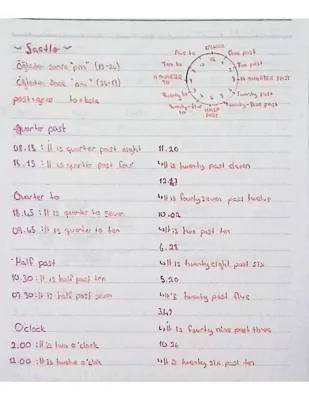 ~ Saatler ~
Öğleden sonra "pm" (13-24)
Öğleden önce "am" (24-12)
past = geçe to = kala
o'clock
Five to
Five past
Ten to
Ten past
A QUARTER TO
A QUARTER PAST
Twenty to
Twenty past
Twenty-five to
Twenty-five past
HALF PAST
Quarter past
08.15 : It is quarter past eight
16.15 : It is quarter past four
Quarter to
18.45 : It is quarter to seven
09.45 : It is quarter to ten
Half past
10.30 : It is half past ten
07.30 : It is half past seven
O'clock
2.00 : It is two o'clock
12.00 : It is twelve o'clok
11.20
It is twenty past eleven
12.47
It is fourtyseven past twelve
10.02
It is two past ten
6.28
It is twentyeight past six
5.20
It's twenty past five
3.49
It is fourty nine past three
10.26
It is twenty six past ten